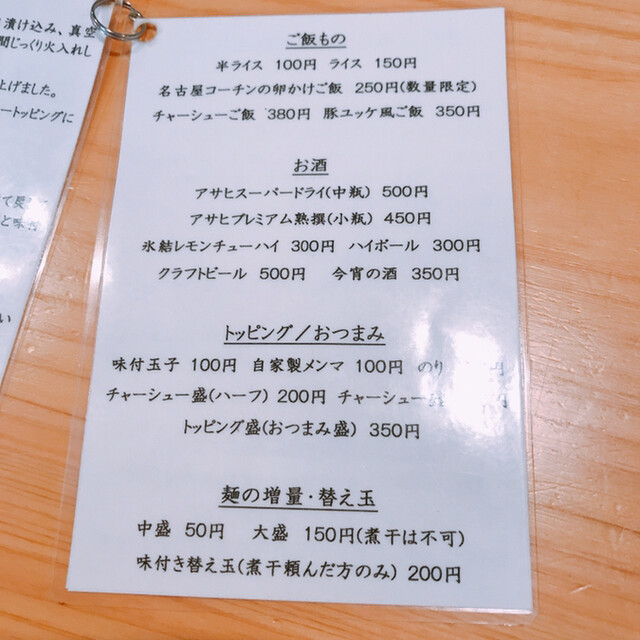 漬け込み、真空
間じっくり火入れし
上げました。
ートッピングに
ご飯もの
半ライス 100円 ライス 150円
名古屋コーチンの卵かけご飯 250円(数量限定)
チャーシューご飯 380円 豚ユッケ風ご飯 350円
お酒
アサヒスーパードライ(中瓶) 500円
アサヒプレミアム熟撰(小瓶) 450円
氷結レモンチューハイ 300円 ハイボール 300円
クラフトビール 500円 今宵の酒 350円
トッピング/おつまみ
味付玉子 100円 自家製メンマ 100円 のり 円
チャーシュー盛(ハーフ) 200円 チャーシュー 円
トッピング盛(おつまみ盛) 350円
麺の増量・替え玉
中盛 50円 大盛 150円(煮干は不可)
味付き替え玉(煮干頼んだ方のみ) 200円